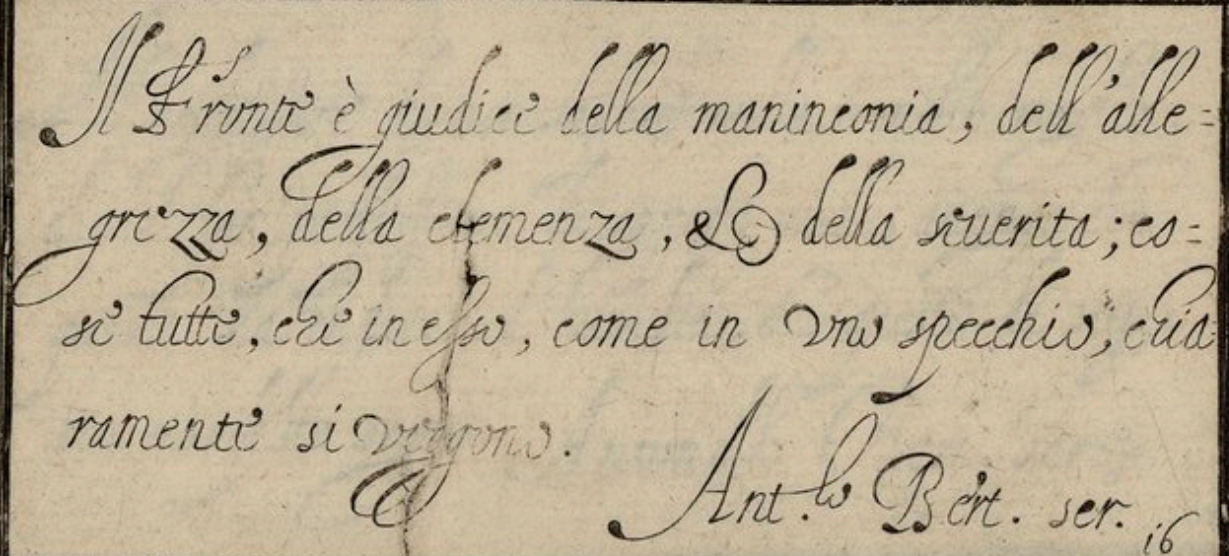 Il Fronte è giudice della maninconia, dell'alle=
grezza, della clemenza, & della seuerita; co=
se tutte, che in esso, come in vno specchio, chia=
ramente si vegono.
Ant.lo Bert. scr. 16